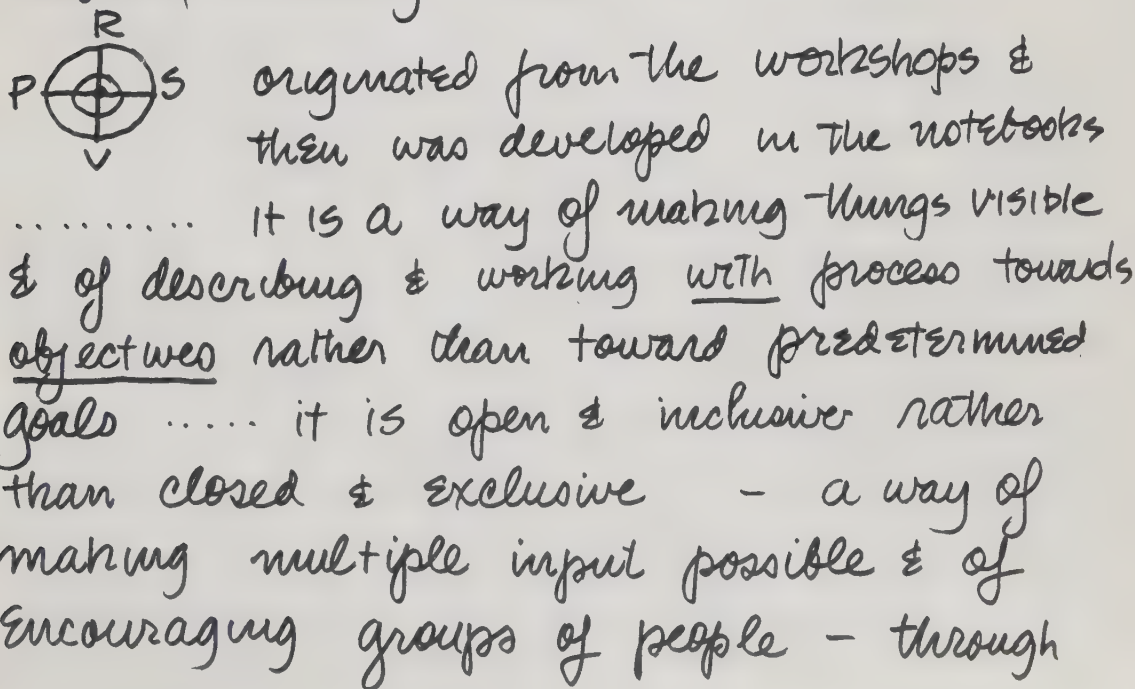 R
P S
V
originated from the workshops &
then was developed in the notebooks
......... it is a way of making things visible
& of describing & working with process towards
objectives rather than toward predetermined
goals ..... it is open & inclusive rather
than closed & exclusive - a way of
making multiple input possible & of
encouraging groups of people - through